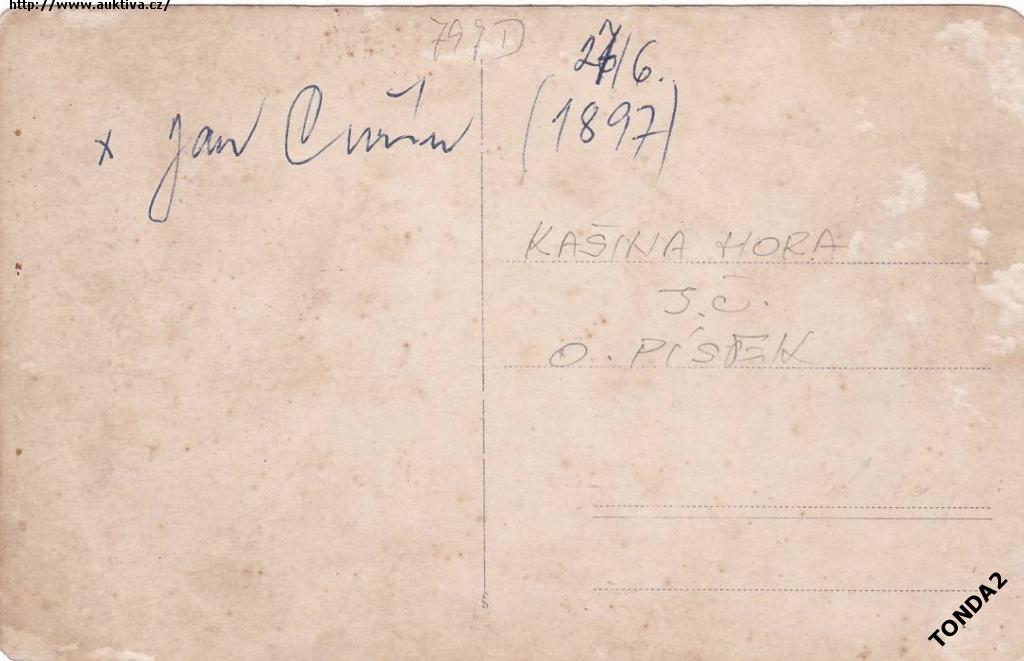 http://www.auktiva.cz/
799D
/6.
x Jan
(1897)
KAŠINA HORA
J.Č.
O. PÍSEK
TONDA2